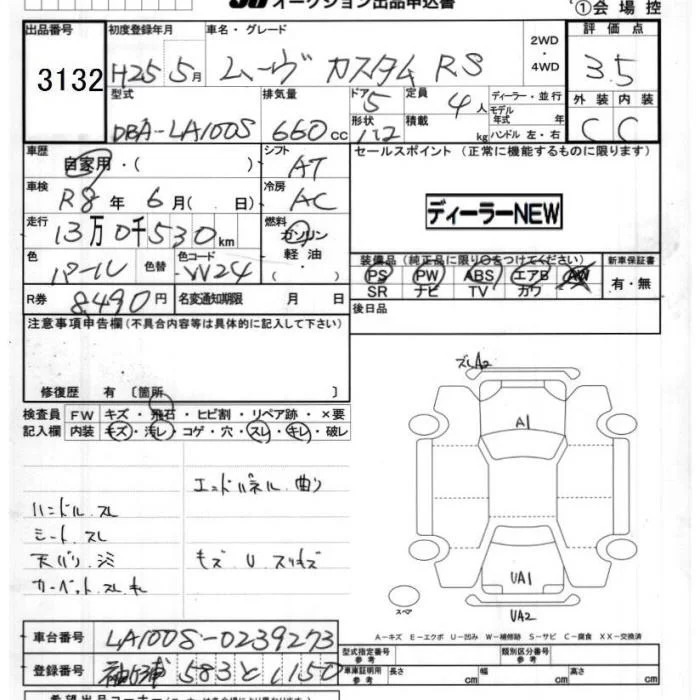 オークション出品申込書
①会場控
出品番号 初度登録年月 車名・グレード 2WD 4WD 評価点
3132 H25 5月 ムーヴ カスタム RS 3.5
型式 排気量 ドア 定員 ディーラー・並行 外装 内装
DBA-LA100S 660cc 5 4人 モデル年式 年 C C
形状 積載 kg ハンドル 左・右
車歴 自家用・( ) シフト AT セールスポイント (正常に機能するものに限ります)
車検 R8年 6月( 日) 冷房 AC
ディーラーNEW
走行 13万0千530km 燃料 ガソリン 軽油 ・( )
色 パール 色替 色コード W24
装備品 (純正品に限り○をつけてください) 新車保証書
PS PW ABS エアB AW 有・無
SR ナビ TV カワ
R券 8,490円 名変通知期限 月 日
後日品
注意事項申告欄 (不具合内容等は具体的に記入して下さい)
修復歴 有 〔箇所 〕
検査員 FW キズ・飛石・ヒビ割・リペア跡・×要
記入欄 内装 キズ・汚レ・コゲ・穴・スレ・キレ・破レ
エンドパネル 曲り
ハンドル スレ
シート スレ
天バリ シミ キズ U スリキズ
カーペット スレ キレ
ズレA2
A1
UA1
UA2
スペア
A−キズ E−エクボ U−凹み W−補修跡 S−サビ C−腐食 XX−交換済
車台番号 LA100S-0239273
型式指定番号 参考 類別区分番号 参考
登録番号 袖ヶ浦 583 と 1150
車庫証明用 参考 長さ cm 幅 cm 高さ cm